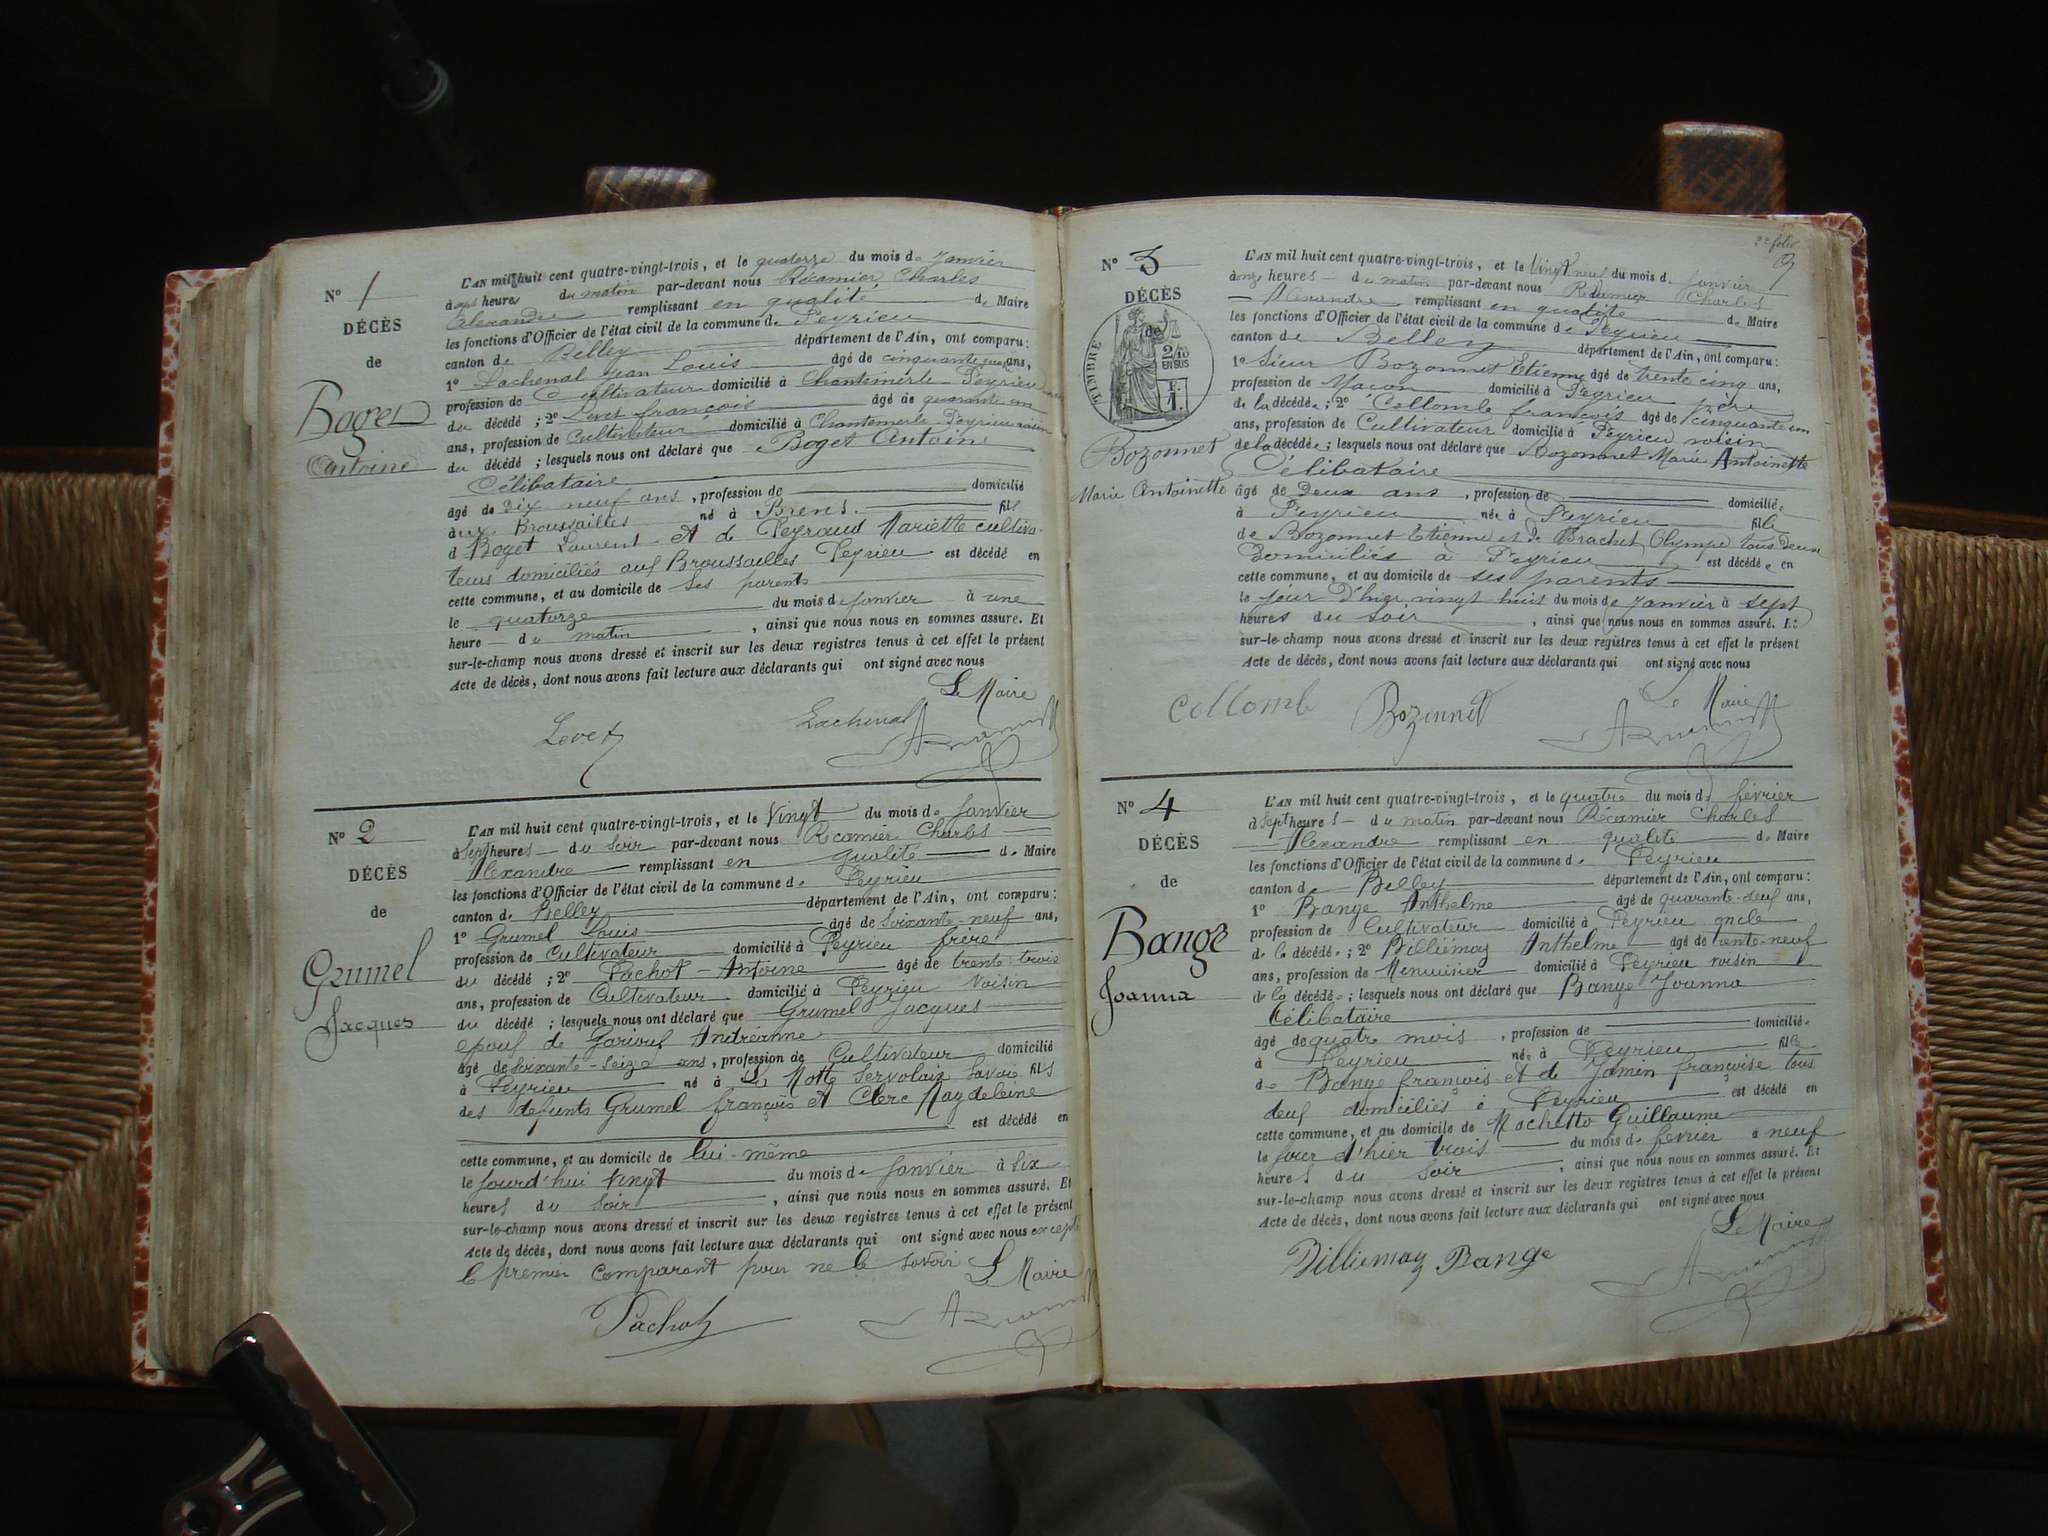 N° 1
DÉCÈS
de
Boget
Antoine
L'AN mil huit cent quatre-vingt-trois, et le quatorze du mois de Janvier
à onze heures du matin par-devant nous Récamier Charles
Alexandre remplissant en qualité de Maire
les fonctions d'Officier de l'état civil de la commune de Peyrieu
canton de Belley département de l'Ain, ont comparu:
1° Lachenal Jean Louis âgé de cinquante ans,
profession de Cultivateur domicilié à Chantemerle Peyrieu
du décédé ; 2° Levet françois âgé de quarante un
ans, profession de Cultivateur domicilié à Chantemerle Peyrieu voisin
du décédé ; lesquels nous ont déclaré que Boget Antoine
Célibataire
âgé de Dix neuf ans, profession de domicilié
aux Broussailles né à Brens. fils
d Boget Laurent Et de Peyraud Mariette cultiva-
teurs domiciliés aux Broussailles Peyrieu est décédé en
cette commune, et au domicile de Ses parents
le quatorze du mois de Janvier à une
heure du matin, ainsi que nous nous en sommes assuré. Et
sur-le-champ nous avons dressé et inscrit sur les deux registres tenus à cet effet le présent
Acte de décès, dont nous avons fait lecture aux déclarants qui ont signé avec nous
Le Maire
Levet Lachenal
N° 2
DÉCÈS
de
Grumel
Jacques
L'AN mil huit cent quatre-vingt-trois, et le Vingt du mois de Janvier
à Sept heures du Soir par-devant nous Récamier Charles
Alexandre remplissant en qualité de Maire
les fonctions d'Officier de l'état civil de la commune de Peyrieu
canton de Belley département de l'Ain, ont comparu:
1° Grumel Louis âgé de Soixante-neuf ans,
profession de Cultivateur domicilié à Peyrieu frère
du décédé ; 2° Pachot-Antoine âgé de trente-trois
ans, profession de Cultivateur domicilié à Peyrieu Voisin
du décédé ; lesquels nous ont déclaré que Grumel Jacques
epoux de Andréanne
âgé de Soixante-Seize ans, profession de Cultivateur domicilié
à Peyrieu né à La Motte Servolaix Savoie fils
des defunts Grumel françois Et Clerc Magdeleine
est décédé en
cette commune, et au domicile de lui-même
le Jourd'hui Vingt du mois de Janvier à Six
heures du Soir, ainsi que nous nous en sommes assuré. Et
sur-le-champ nous avons dressé et inscrit sur les deux registres tenus à cet effet le présent
Acte de décès, dont nous avons fait lecture aux déclarants qui ont signé avec nous excepté
le premier comparant pour ne le savoir Le Maire
Pachot
2e folio
N° 3
DÉCÈS
de
TIMBRE
2/10
EN SUS
Bozonnet
Marie Antoinette
L'AN mil huit cent quatre-vingt-trois, et le Vingt neuf du mois de Janvier
à onze heures du matin par-devant nous Récamier Charles
Alexandre remplissant en qualité de Maire
les fonctions d'Officier de l'état civil de la commune de Peyrieu
canton de Belley département de l'Ain, ont comparu:
1° Sieur Bozonnet Etienne âgé de trente cinq ans,
profession de Maçon domicilié à Peyrieu père
de la décédée ; 2° Collomb françois âgé de cinquante un
ans, profession de Cultivateur domicilié à Peyrieu voisin
de la décédée ; lesquels nous ont déclaré que Bozonnet Marie Antoinette
Célibataire
âgé de Deux ans, profession de domiciliée
à Peyrieu née à Peyrieu fille
de Bozonnet Etienne et de Brachet Olympe tous deux
Domiciliés à Peyrieu est décédée en
cette commune, et au domicile de ses parents
le jour d'hier vingt huit du mois de Janvier à sept
heures du soir, ainsi que nous nous en sommes assuré. Et
sur-le-champ nous avons dressé et inscrit sur les deux registres tenus à cet effet le présent
Acte de décès, dont nous avons fait lecture aux déclarants qui ont signé avec nous
Le Maire
Collomb Bozonnet
N° 4
DÉCÈS
de
Bange
Joanna
L'AN mil huit cent quatre-vingt-trois, et le quatre du mois de février
à Sept heures du matin par-devant nous Récamier Charles
Alexandre remplissant en qualité de Maire
les fonctions d'Officier de l'état civil de la commune de Peyrieu
canton de Belley département de l'Ain, ont comparu:
1° Bange Anthelme âgé de quarante-deux ans,
profession de Cultivateur domicilié à Peyrieu oncle
de la décédée ; 2° Billiémaz Anthelme âgé de trente-neuf
ans, profession de Menuisier domicilié à Peyrieu voisin
de la décédée ; lesquels nous ont déclaré que Bange Joanna
Célibataire
âgé de quatre mois, profession de domiciliée
à Peyrieu née à Peyrieu fille
de Bange françois Et de Jamin françoise tous
deux domiciliés à Peyrieu est décédé en
cette commune, et au domicile de Guillaume
le Jour d'hier trois du mois de février à neuf
heures du Soir, ainsi que nous nous en sommes assuré. Et
sur-le-champ nous avons dressé et inscrit sur les deux registres tenus à cet effet le présent
Acte de décès, dont nous avons fait lecture aux déclarants qui ont signé avec nous
Le Maire
Billiemaz Bange